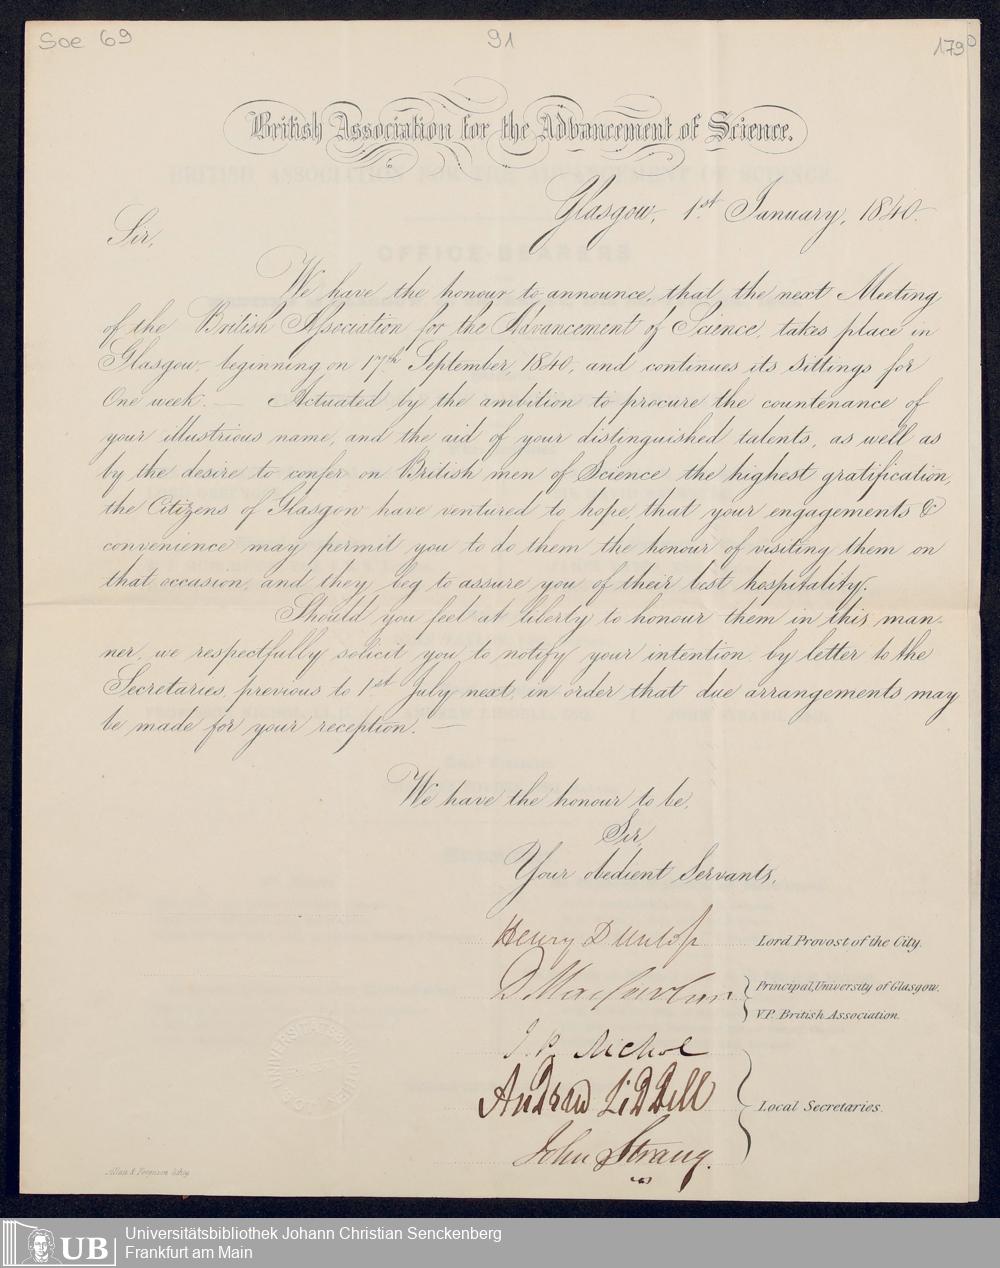 Soe 69
91
179
British Association for the Advancement of Science.
Glasgow, 1st January, 1840.
Sir,
We have the honour to announce, that the next Meeting
of the British Association for the Advancement of Science, takes place in
Glasgow, beginning on 17th September, 1840, and continues its sittings for
One week. — Actuated by the ambition to procure the countenance of
your illustrious name, and the aid of your distinguished talents, as well as
by the desire to confer on British men of Science the highest gratification,
the Citizens of Glasgow have ventured to hope, that your engagements &
convenience may permit you to do them the honour of visiting them on
that occasion, and they beg to assure you of their best hospitality.
Should you feel at liberty to honour them in this man-
ner, we respectfully solicit you to notify your intention by letter to the
Secretaries, previous to 1st July next, in order that due arrangements may
be made for your reception. —
We have the honour to be,
Sir,
Your obedient Servants,
Henry Dunlop Lord Provost of the City.
D Macfarlan Principal, University of Glasgow.
V.P. British Association.
J. P. Nichol
Andrew Liddell Local Secretaries.
John Strang.
Allan & Ferguson Lithog
UB
Universitätsbibliothek Johann Christian Senckenberg
Frankfurt am Main